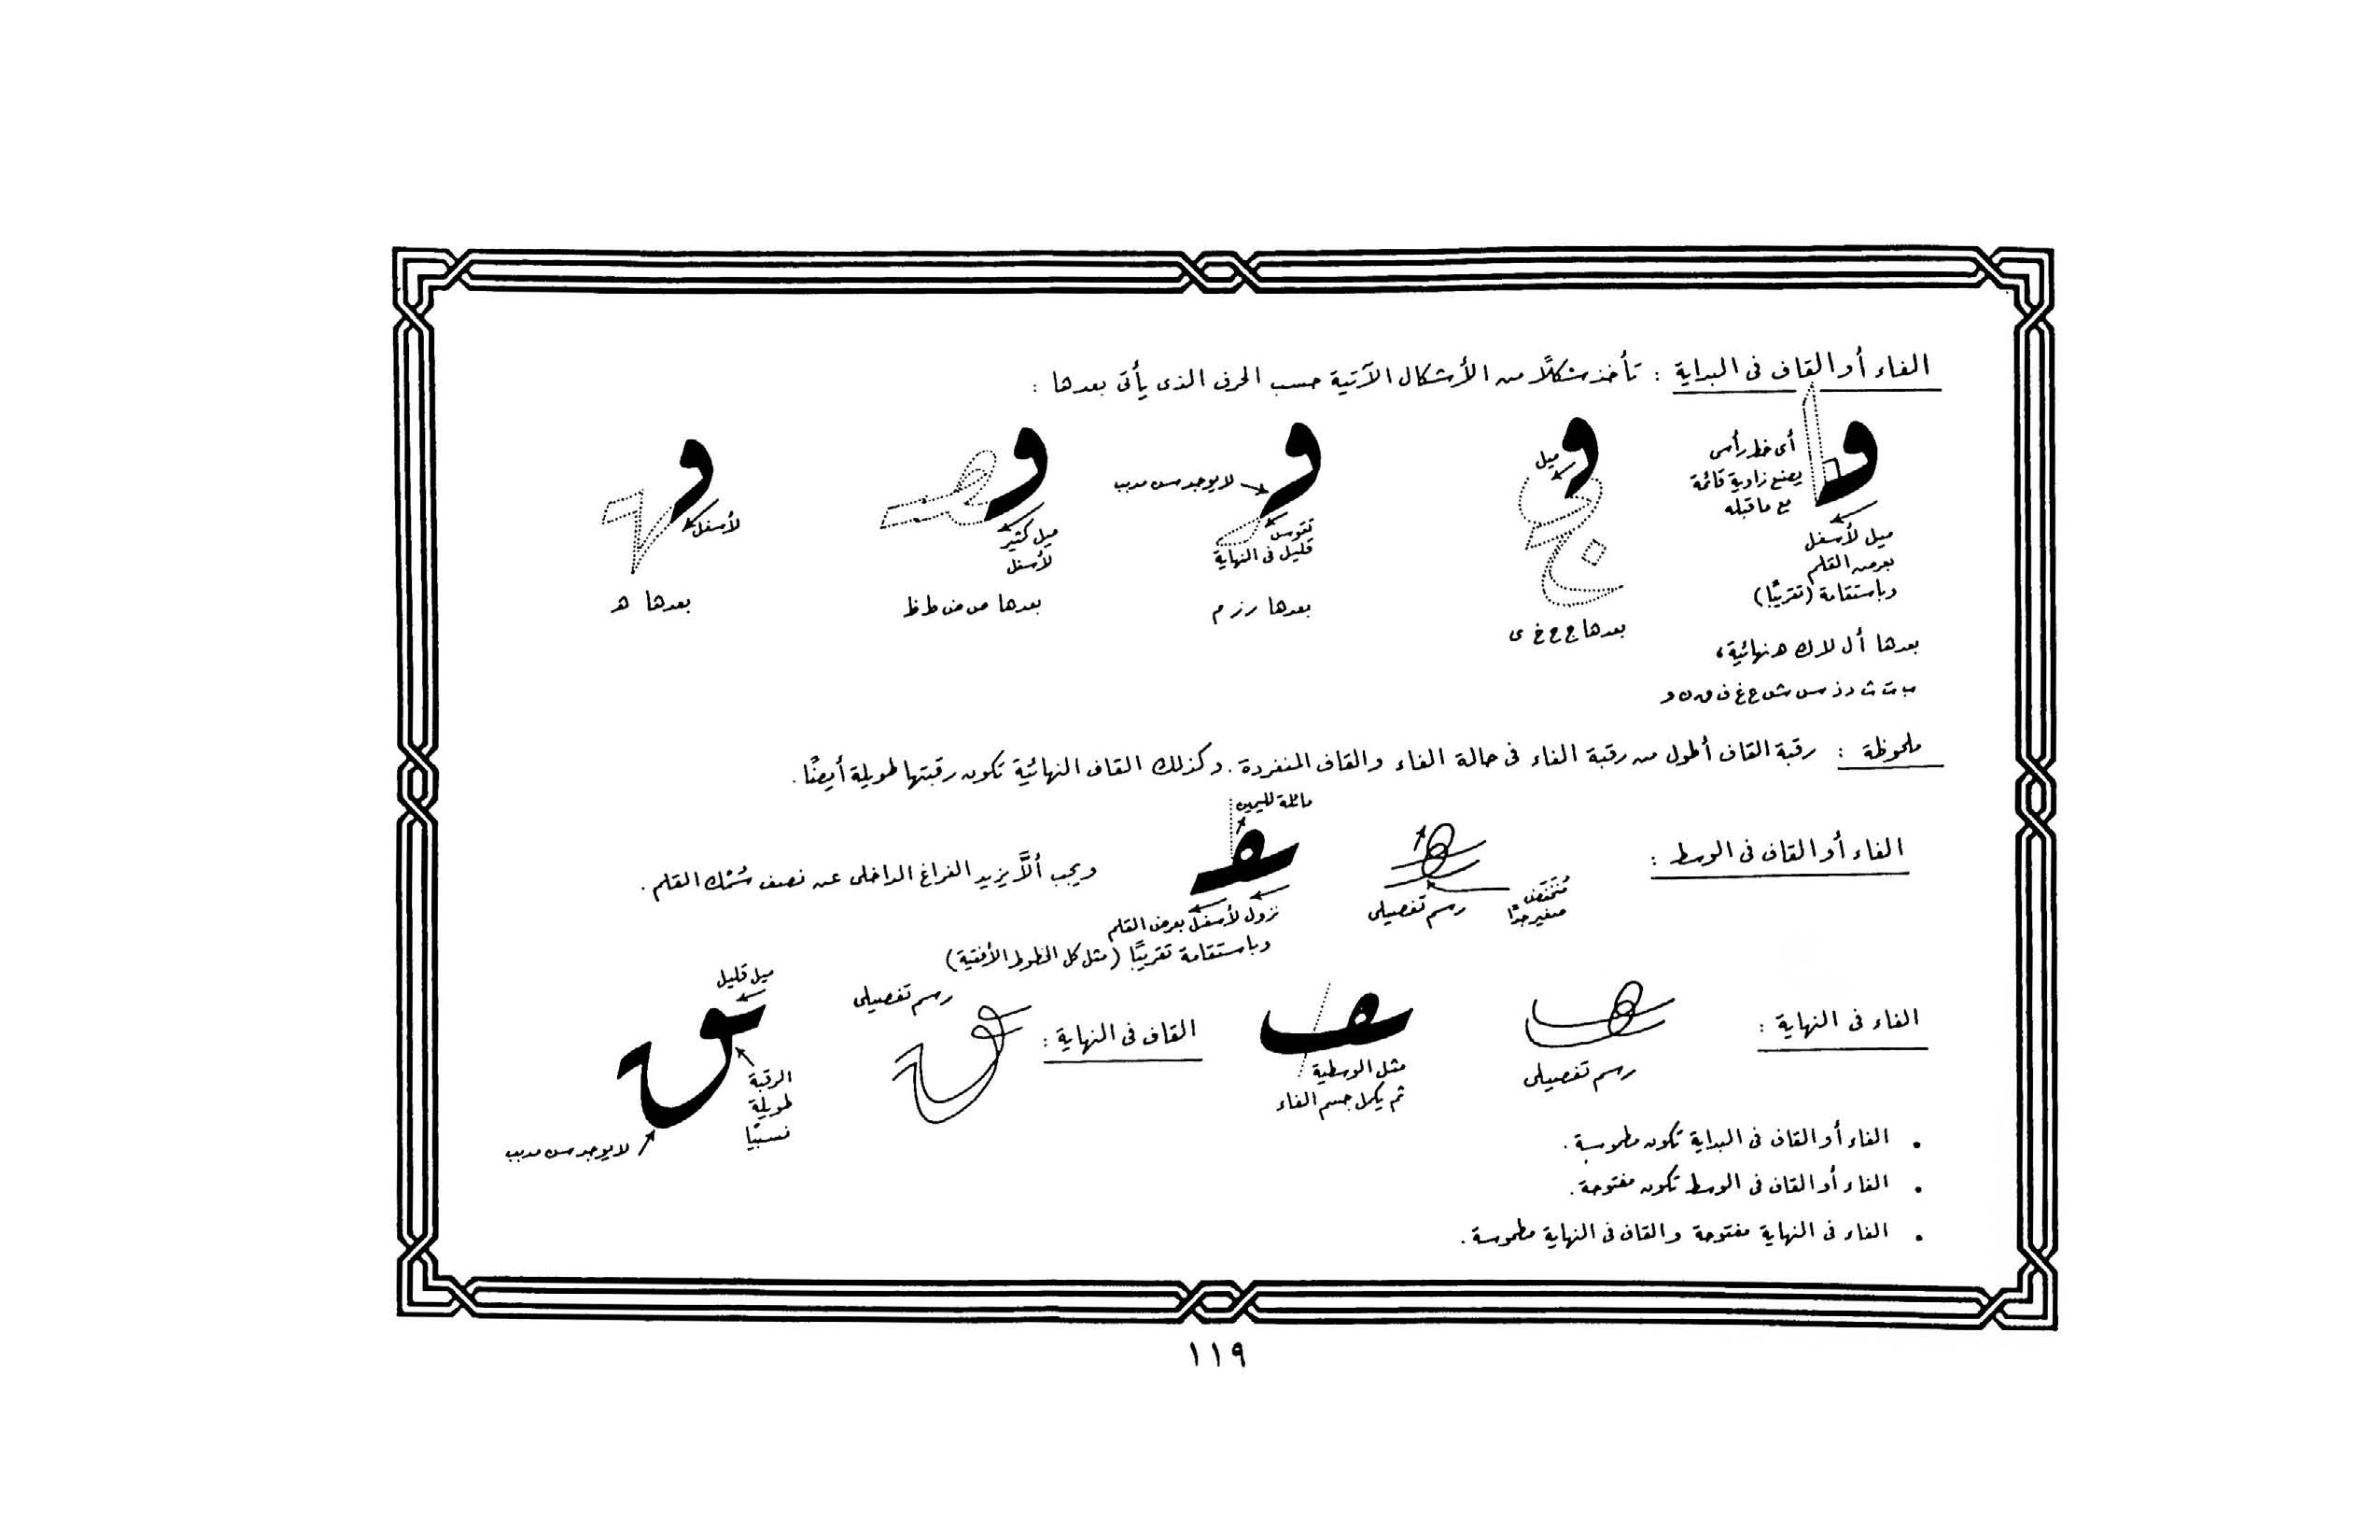 الفاء أو القاف فى البداية : تأخذ شكلاً من الأشكال الآتية حسب الحرف الذى يأتى بعدها :
أى خط رأسى
يصنع زاوية قائمة
مع ما قبله
ميل لأسفل
بعرض القلم
وباستقامة (تقريبًا)
بعدها أ ل لا ك ه نهائية،
ب ت ث د ذ س ش ع غ ف ق ن و
ميل
بعدها ج ح خ ى
لا يوجد سن مدبب
تقوس
قليل فى النهاية
بعدها ر ز م
ميل كثير
لأسفل
بعدها ص ض ط ظ
لأسفل
بعدها ه
ملحوظة : رقبة القاف أطول من رقبة الفاء فى حالة الفاء والقاف المنفردة . وكذلك القاف النهائية تكون رقبتها طويلة أيضًا .
الفاء أو القاف فى الوسط :
منخفض
صغير جدًا
رسم تفصيلى
مائلة لليمين
نزول لأسفل بعرض القلم
وباستقامة تقريبًا (مثل كل الخطوط الأفقية)
ويجب ألاَّ يزيد الفراغ الداخلى عن نصف سُمْك القلم .
الفاء فى النهاية :
رسم تفصيلى
مثل الوسطية
ثم يكمل جسم الفاء
القاف فى النهاية :
رسم تفصيلى
ميل قليل
الرقبة
طويلة
نسبيًا
لا يوجد سن مدبب
• الفاء أو القاف فى البداية تكون مطموسة .
• الفاء أو القاف فى الوسط تكون مفتوحة .
• الفاء فى النهاية مفتوحة والقاف فى النهاية مطموسة .
١١٩